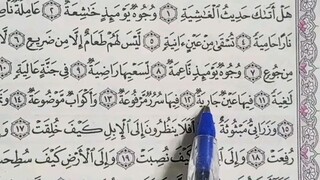 هَلْ أَتَىٰكَ حَدِيثُ ٱلْغَٰشِيَةِ ١ وُجُوهٌ يَوْمَئِذٍ خَٰشِعَةٌ ٢ عَامِلَةٌ
نَارًا حَامِيَةً ٤ تُسْقَىٰ مِنْ عَيْنٍ ءَانِيَةٍ ٥ لَّيْسَ لَهُمْ طَعَامٌ إِلَّا مِن ضَرِيعٍ ٦
مِن جُوعٍ ٧ وُجُوهٌ يَوْمَئِذٍ نَّاعِمَةٌ ٨ لِّسَعْيِهَا رَاضِيَةٌ ٩ فِى جَنَّةٍ عَالِيَةٍ ١٠
لَٰغِيَةً ١١ فِيهَا عَيْنٌ جَارِيَةٌ ١٢ فِيهَا سُرُرٌ مَّرْفُوعَةٌ ١٣ وَأَكْوَابٌ مَّوْضُوعَةٌ ١٤
١٥ وَزَرَابِىُّ مَبْثُوثَةٌ ١٦ أَفَلَا يَنظُرُونَ إِلَى ٱلْإِبِلِ كَيْفَ خُلِقَتْ ١٧
رُفِعَتْ ١٨ وَإِلَى كَيْفَ نُصِبَتْ ١٩ وَإِلَى ٱلْأَرْضِ كَيْفَ